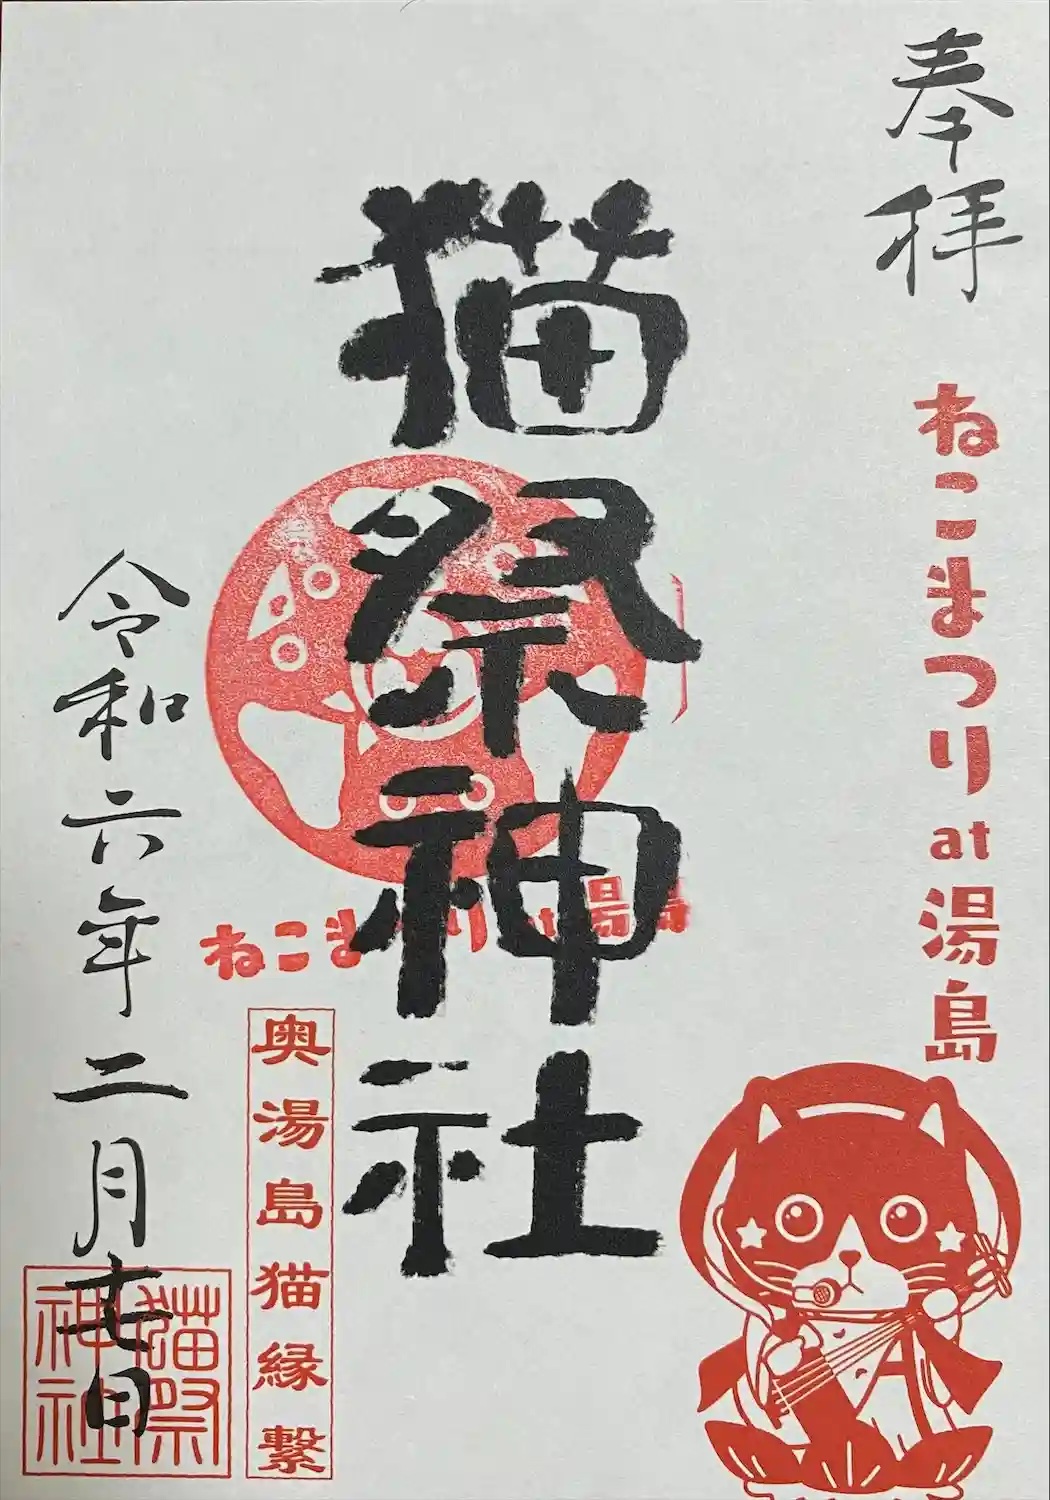 奉拝
ねこまつりat湯島
猫祭神社
ねこまつりat湯島
奥湯島猫縁繋
令和六年二月 日
猫祭
神社